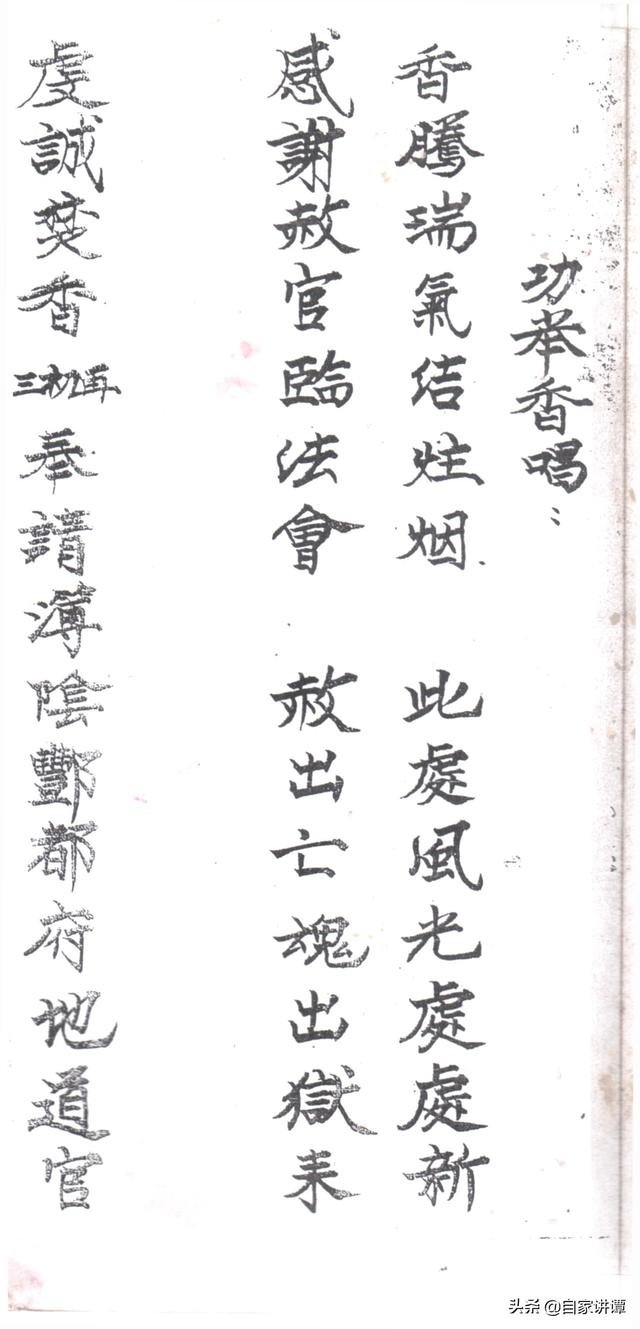 功举香唱：
香騰瑞氣结炷烟 此處風光處處新
感謝赦官臨法會 赦出亡魂出獄来
虔誠焚香三扒再奉請溥陰酆都府地道官
头条 @自家讲谭